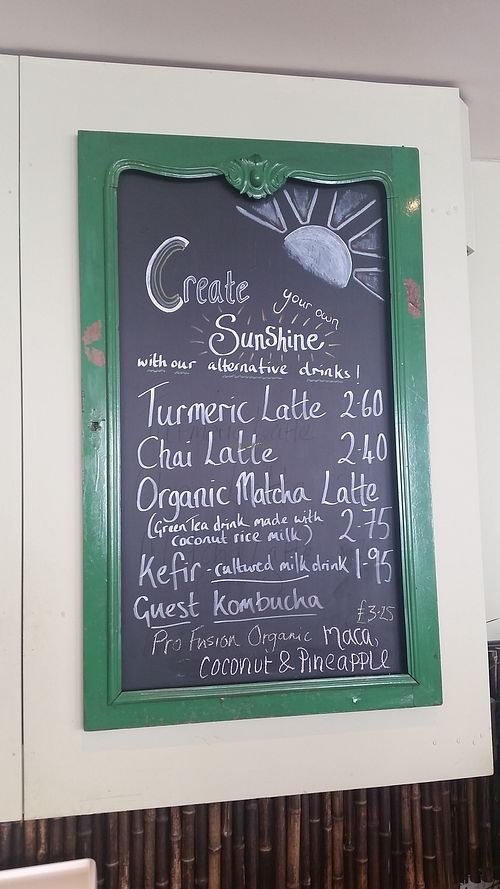 Create
your own
Sunshine
with our alternative drinks!
Turmeric Latte 2.60
Chai Latte 2.40
Organic Matcha Latte
(Green Tea drink made with
coconut rice milk) 2.75
Kefir - cultured milk drink 1.95
Guest Kombucha £3.25
Pro Fusion Organic Maca,
Coconut & Pineapple